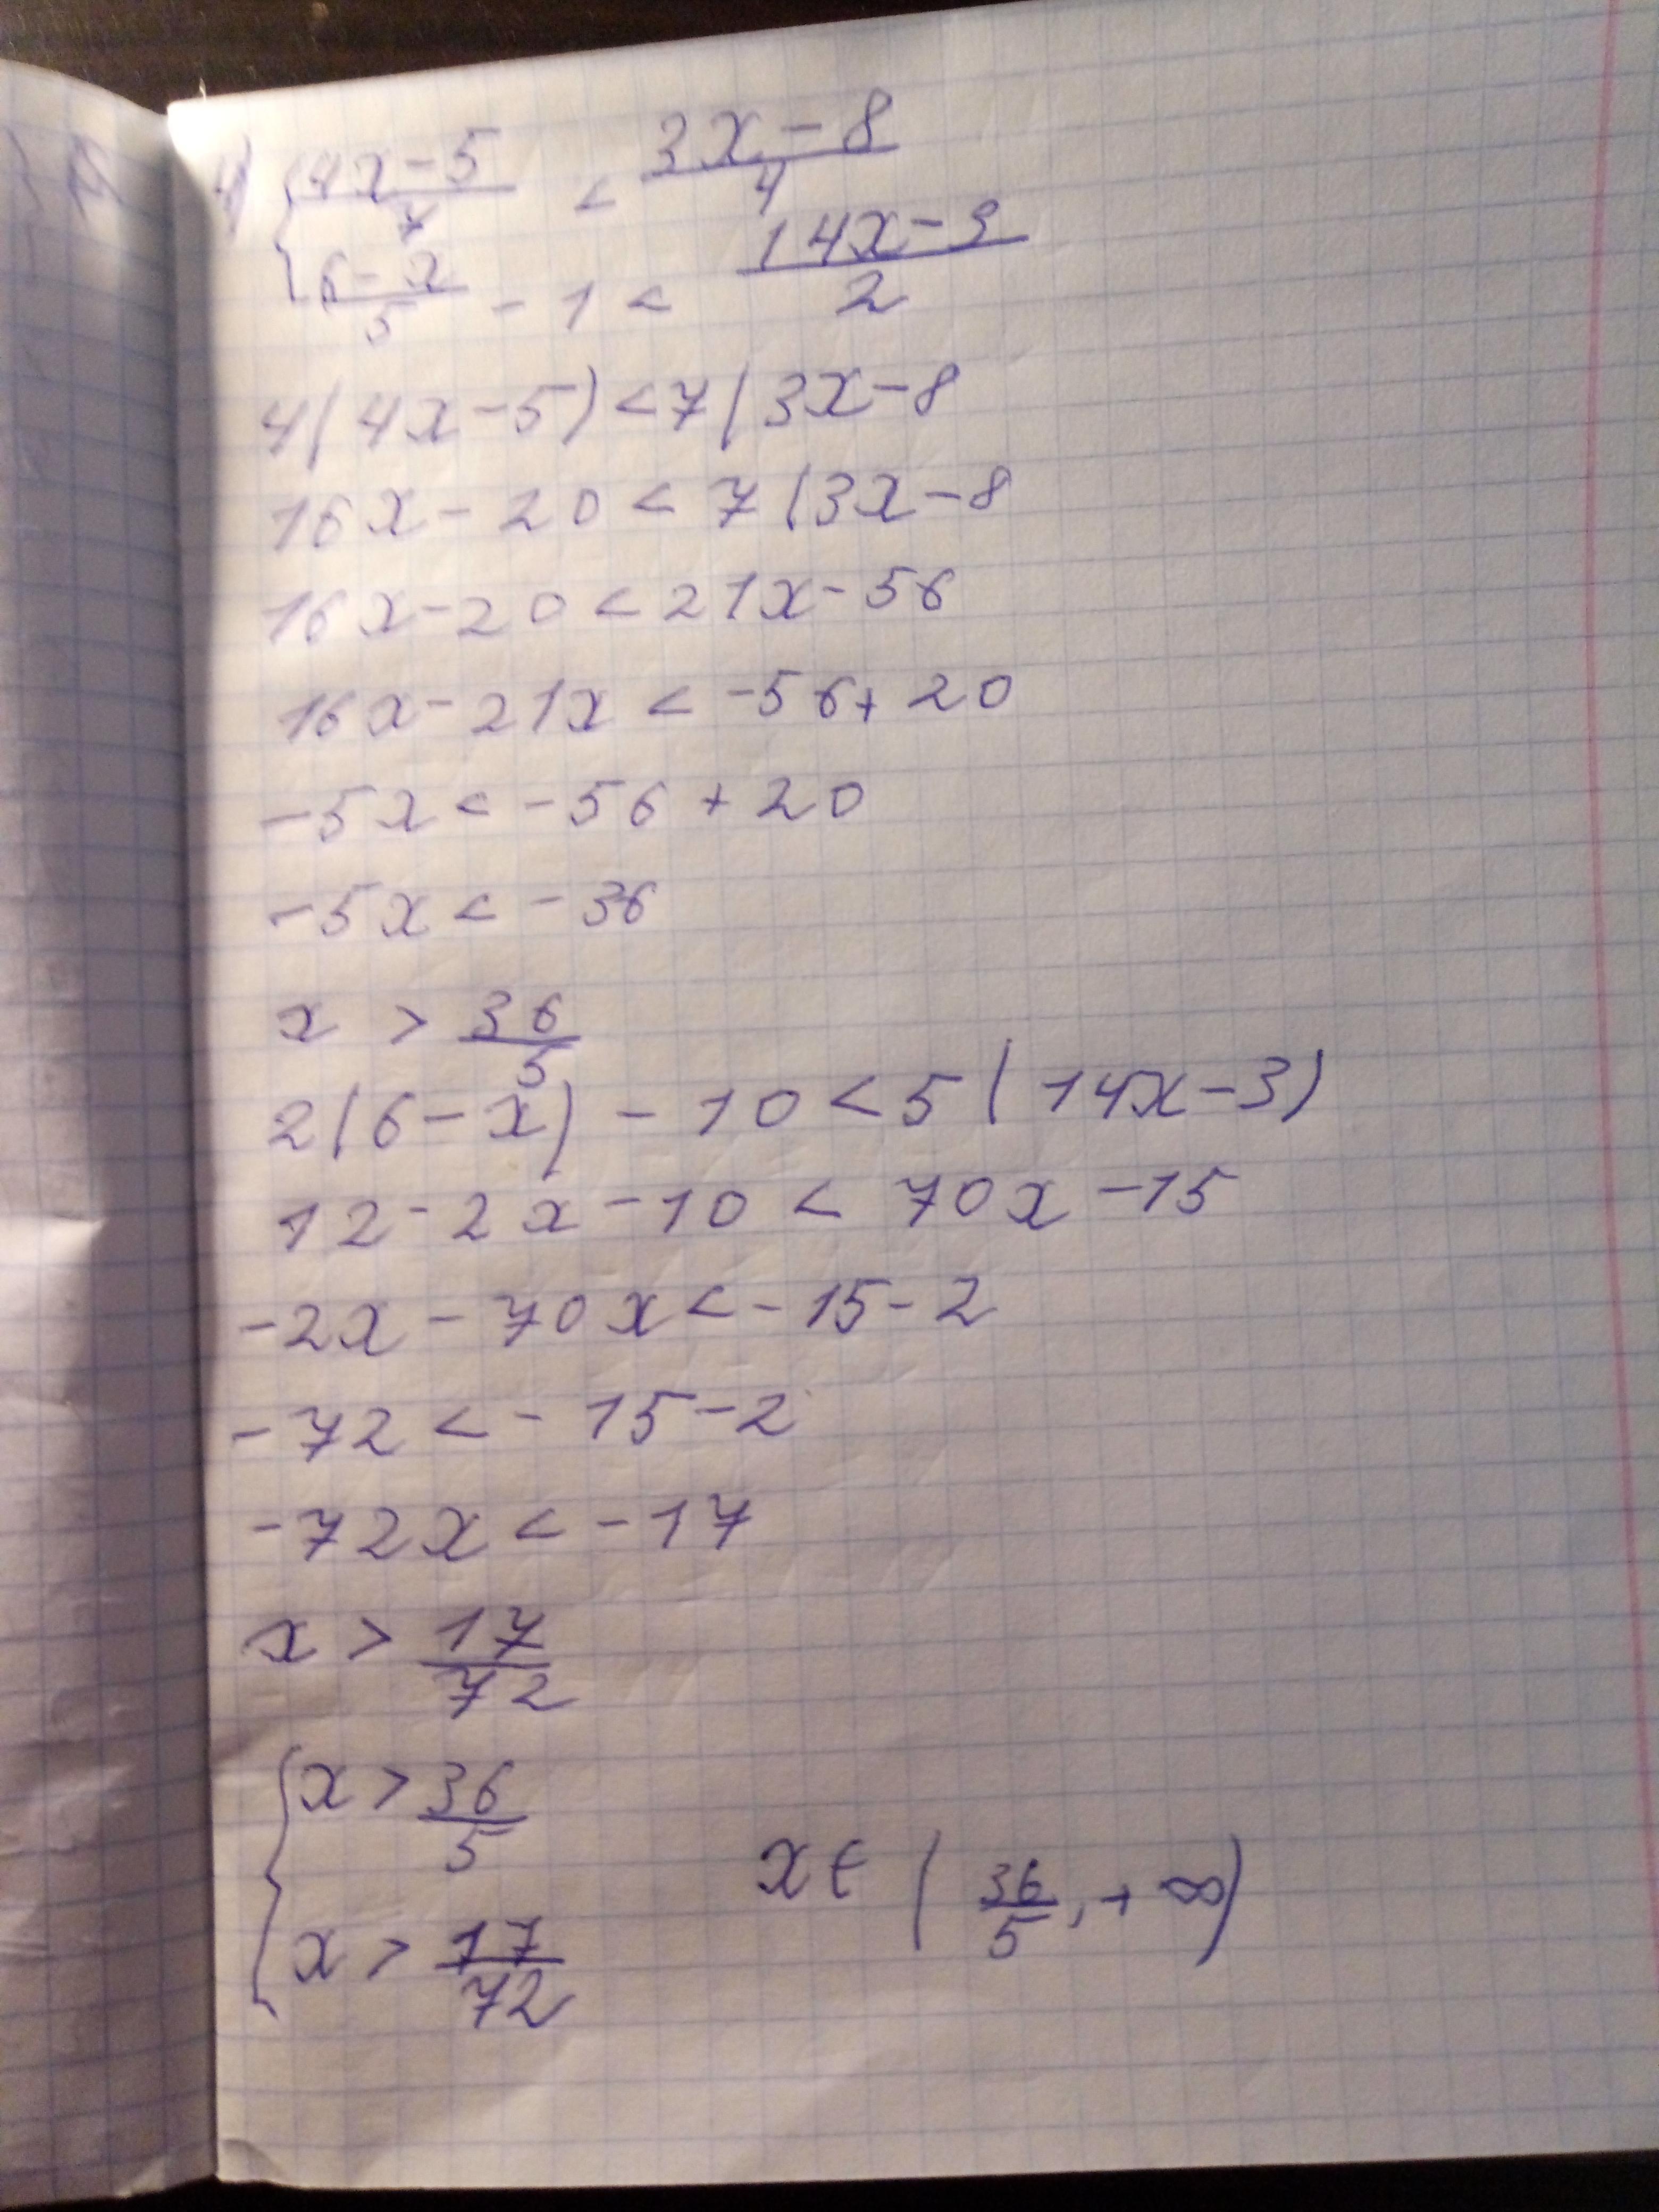 4) { (4x-5)/7 < (3x-8)/4
(6-x)/5 - 1 < (14x-3)/2
4(4x-5) < 7(3x-8
16x - 20 < 7(3x-8
16x-20 < 21x-56
16x-21x < -56+20
-5x < -56+20
-5x < -36
x > 36/5
2(6-x) - 10 < 5(14x-3)
12-2x-10 < 70x-15
-2x-70x < -15-2
-72 < -15-2
-72x < -17
x > 17/72
{ x > 36/5
x > 17/72
x ∈ (36/5, +∞)